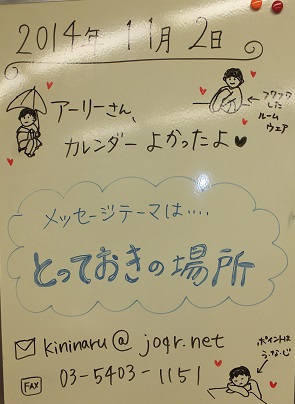 2014年 11月 2日
アーリーさん、
カレンダーよかったよ
フワフワ
した
ルーム
ウェア
メッセージテーマは....
とっておきの場所
kininaru@joqr.net
FAX 03-5403-1151
ポイントは
うなじ